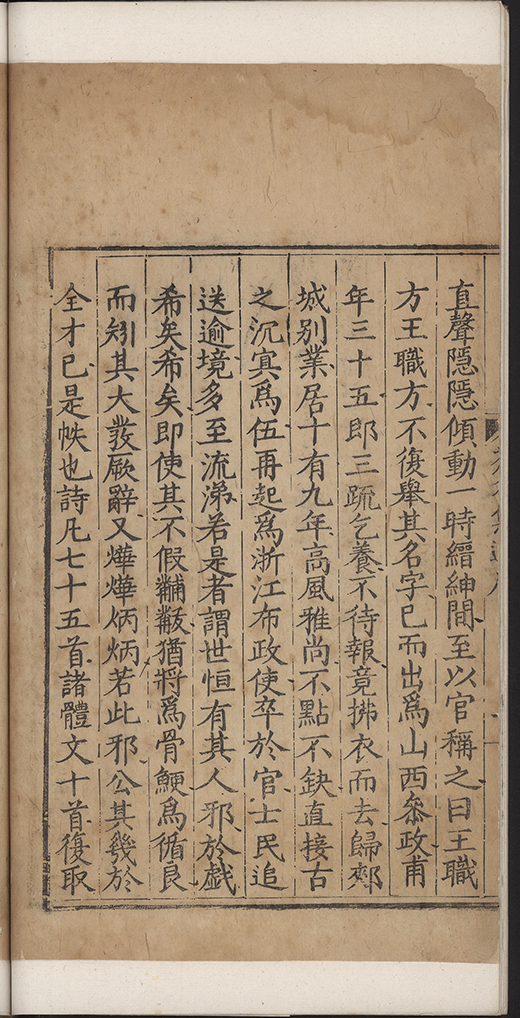 直聲隱隱傾動一時縉紳間至以官稱之曰王職
方王職方不復舉其名字已而出爲山西叅政甫
年三十五郎三疏乞養不待報竟拂衣而去歸郟
城別業居十有九年高風雅尚不點不缺直接古
之沉寘爲伍再起爲浙江布政使卒於官士民追
送逾境多至流涕若是者謂世恒有其人邪於戲
希矣希矣即使其不假黼黻猶將爲骨鯁爲循良
而矧其大發厥辭又燁燁炳炳若此邪公其幾於
全才已是帙也詩凡七十五首諸體文十首復取